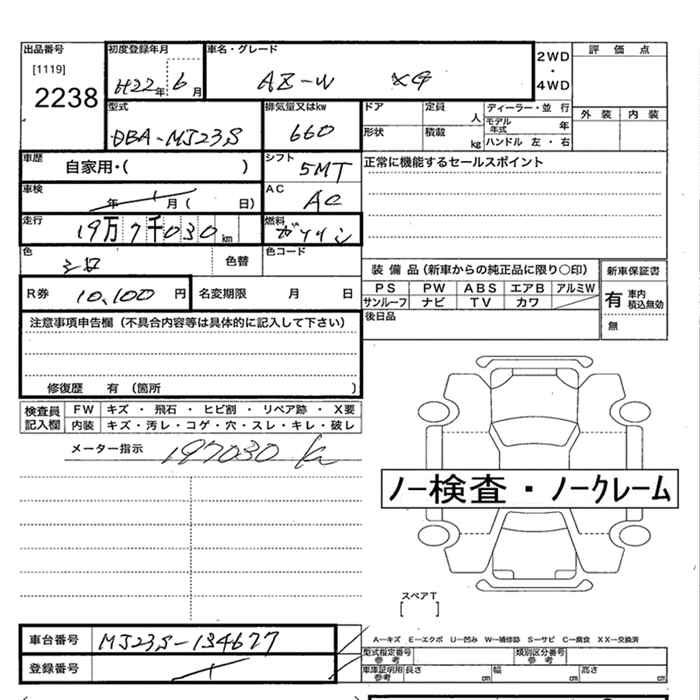 出品番号 初度登録年月 車名・グレード 評価点
[1119] 2WD
2238 H22年 6月 AZ-W X4 ・
4WD
型式 排気量又はkw ドア 定員 人 ディーラー・並行 外装 内装
DBA-MJ23S 660 モデル年式 年
形状 積載 kg ハンドル 左・右
車歴 自家用・( ) シフト 5MT 正常に機能するセールスポイント
車検 年 月( 日) AC AC
走行 19万7千030km 燃料 ガソリン
色 シロ 色替 色コード
装備品(新車からの純正品に限り〇印) 新車保証書
R券 10,100円 名変期限 月 日 PS PW ABS エアB アルミW 有 車内積込無効
サンルーフ ナビ TV カワ
注意事項申告欄(不具合内容等は具体的に記入して下さい) 後日品 無
修復歴 有 (箇所 )
検査員記入欄 FW キズ・飛石・ヒビ割・リペア跡・X要
内装 キズ・汚レ・コゲ・穴・スレ・キレ・破レ
メーター指示 197030 k
ノー検査・ノークレーム
スペアT
[ ]
車台番号 MJ23S-134677 A―キズ E―エクボ U―凹み W―補修跡 S―サビ C―腐食 XX―交換済
型式指定番号 参考 類別区分番号 参考
登録番号 車庫証明用 参考 長さ cm 幅 cm 高さ cm